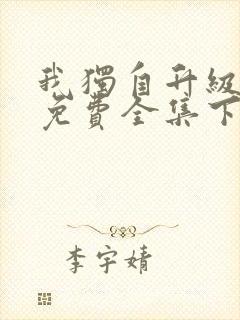 我獨自升級
免費全集下
李宇婧